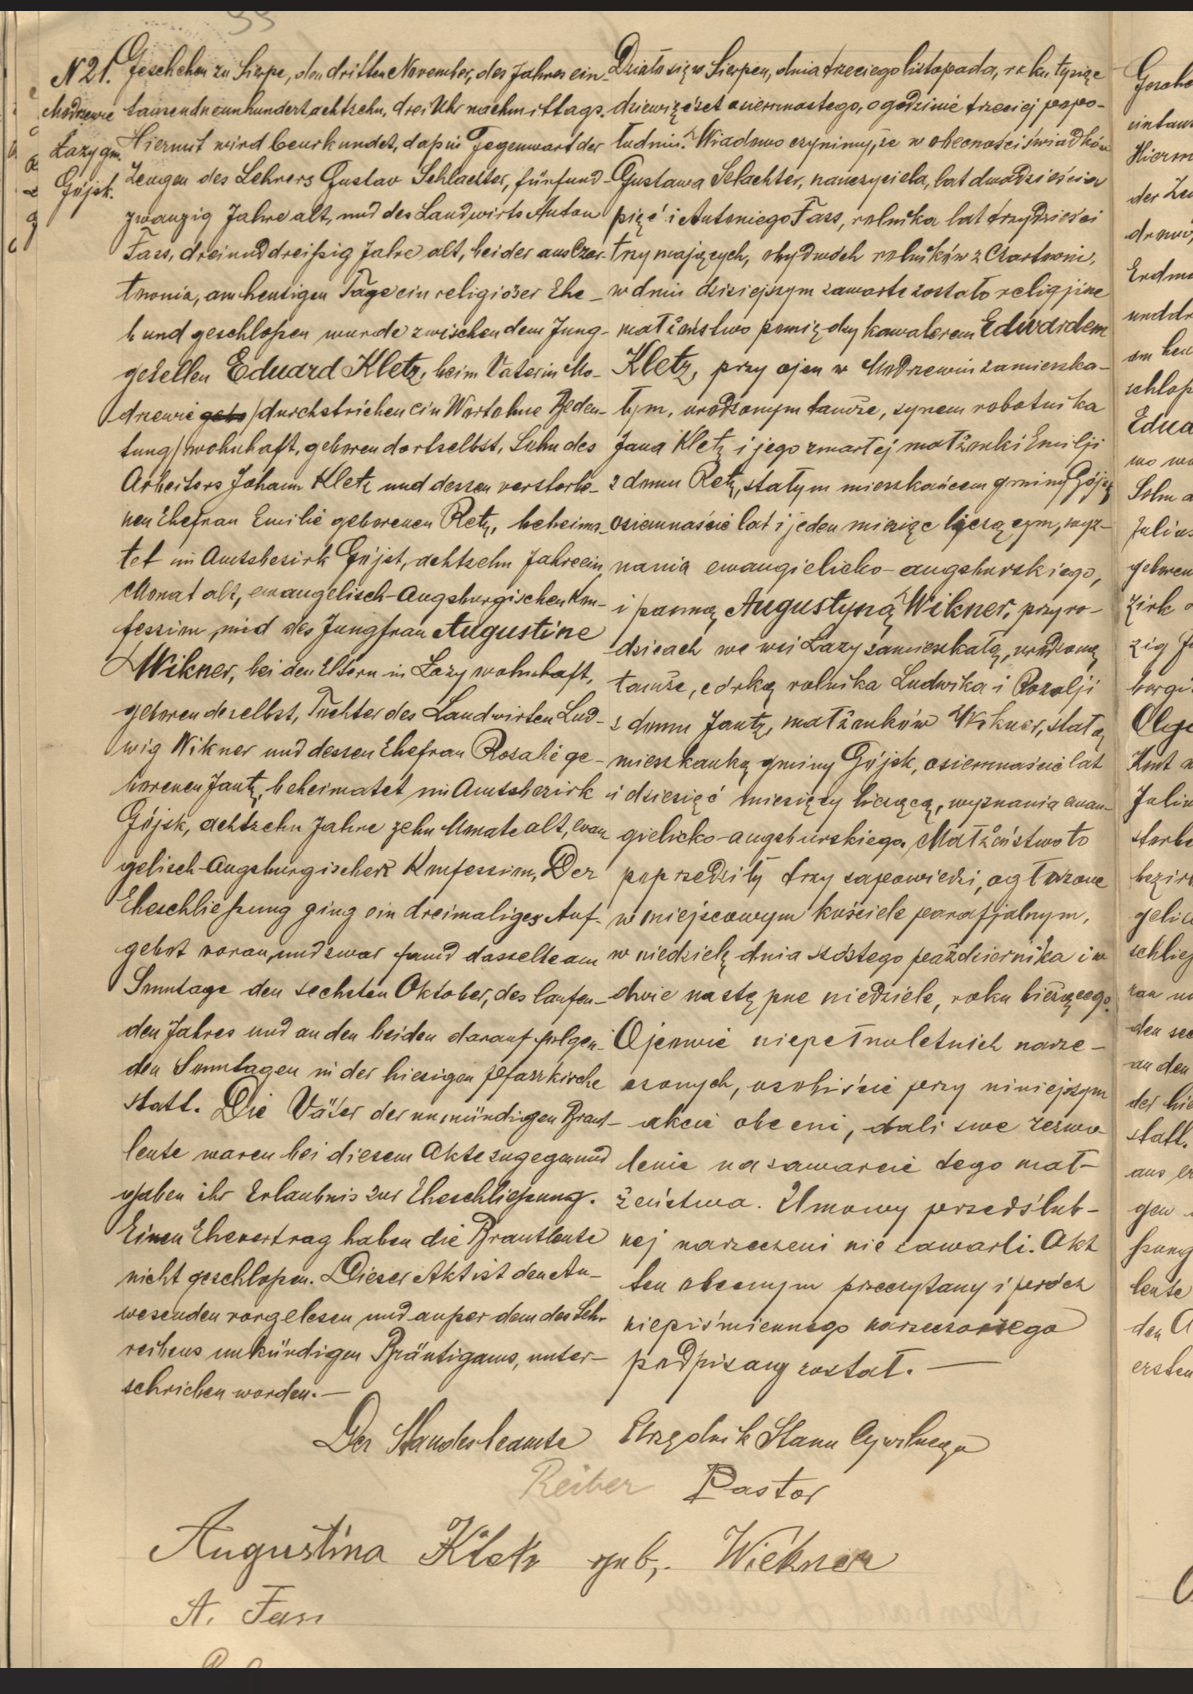 N 21.
Modrzewie
Łazy gm.
Gójsk.
Geschehen zu Sierpe, den dritten November, des Jahres ein-
tausendneunhundertachtzehn, drei Uhr nachmittags.
Hiermit wird beurkundet, daß in Gegenwart der
Zeugen des Lehrers Gustav Schlachter, fünfund-
zwanzig Jahre alt, und des Landwirts Anton
Fass, dreiunddreißig Jahre alt, beider aus Czar-
twonia, am heutigen Tage ein religiöser Ehe-
bund geschloßen wurde zwischen dem Jung-
gesellen Eduard Kletz, beim Vater in Mo-
drzewie gebo /durchstrichen ein Wort ohne Bedeu-
tung/ wohnhaft, geboren dortselbst, Sohn des
Arbeiters Johann Kletz und dessen verstorbe-
nen Ehefrau Emilie geborenen Retz, beheima-
tet im Amtsbezirk Gójsk, achtzehn Jahre ein
Monat alt, evangelisch-Augsburgischen Kon-
fession, und des Jungfrau Augustine
Wikner, bei den Eltern in Łazy wohnhaft,
geboren deselbst, Tochter des Landwirten Lud-
wig Wikner und dessen Ehefrau Rosalie ge-
borenen Jantz, beheimatet im Amtsbezirk
Gójsk, achtzehn Jahre zehn Monate alt, evan
gelisch-Augsburgischer Konfession. Der
Eheschließung ging ein dreimaliges Auf-
gebot voran, und zwar fand dasselbe am
Sonntage den sechsten Oktober, des laufen-
den Jahres und an den beiden darauf folgen-
den Sonntagen in der hiesigen Pfarrkirche
statt. Die Väter der unmündigen Braut-
leute waren bei diesem Akte zugegen und
gaben ihr Erlaubnis zur Eheschließung.
Einen Ehevertrag haben die Brautleute
nicht geschloßen. Dieser Akt ist den An-
wesenden vorgelesen und außer dem des Sch-
reibens unkündigen Bräutigams, unter-
schrieben worden.-
Działo się w Sierpcu, dnia trzeciego listopada, roku tysiąc
dziewięćset osiemnastego, o godzinie trzeciej popo-
łudniu. Wiadomo czynimy, że w obecności świadków
Gustawa Schlachter, nauczyciela, lat dwadzieścia
pięć i Antoniego Fass, rolnika lat trzydzieści
trzy mających, obydwóch rolników z Czartowni,
w dniu dzisiejszym zawarte zostało religijne
małżeństwo pomiędzy kawalerem Edwardem
Kletz, przy ojcu w Modrzewiu zamieszka-
łym, urodzonym tamże, synem robotnika
Jana Kletz i jego zmarłej małżonki Emilji
z domu Retz, stałym mieszkańcem gminy Gójsk,
osiemnaście lat i jeden miesiąc liczącym, wyz-
nania ewangielicko-augsburskiego,
i panną Augustyną Wikner, przy ro-
dzicach we wsi Łazy zamieszkałą, urodzoną
tamże, córką rolnika Ludwika i Rozalji
z domu Jantz, małżonków Wikner, stałą
mieszkanką gminy Gójsk, osiemnaście lat
i dziesięć miesięcy liczącą, wyznania ewan-
gielicko-augsburskiego. Małżeństwo to
poprzedziły trzy zapowiedzi, ogłoszone
w miejscowym kościele parafjalnym,
w niedzielę dnia szóstego października i w
dwie następne niedziele, roku bieżącego.
Ojcowie niepełnoletnich narze-
czonych, osobiście przy niniejszym
akcie obecni, dali swe zezwo
lenie na zawarcie tego mał-
żeństwa. Umowy przedślub-
nej narzeczeni nie zawarli. Akt
ten obecnym przeczytany i prócz
niepiśmiennego narzeczonego
podpisany został.-
Der Standesbeamte Urzędnik Stanu Cywilnego
Reiber Pastor
Augustina Kletz geb. Wiekner
A. Fass